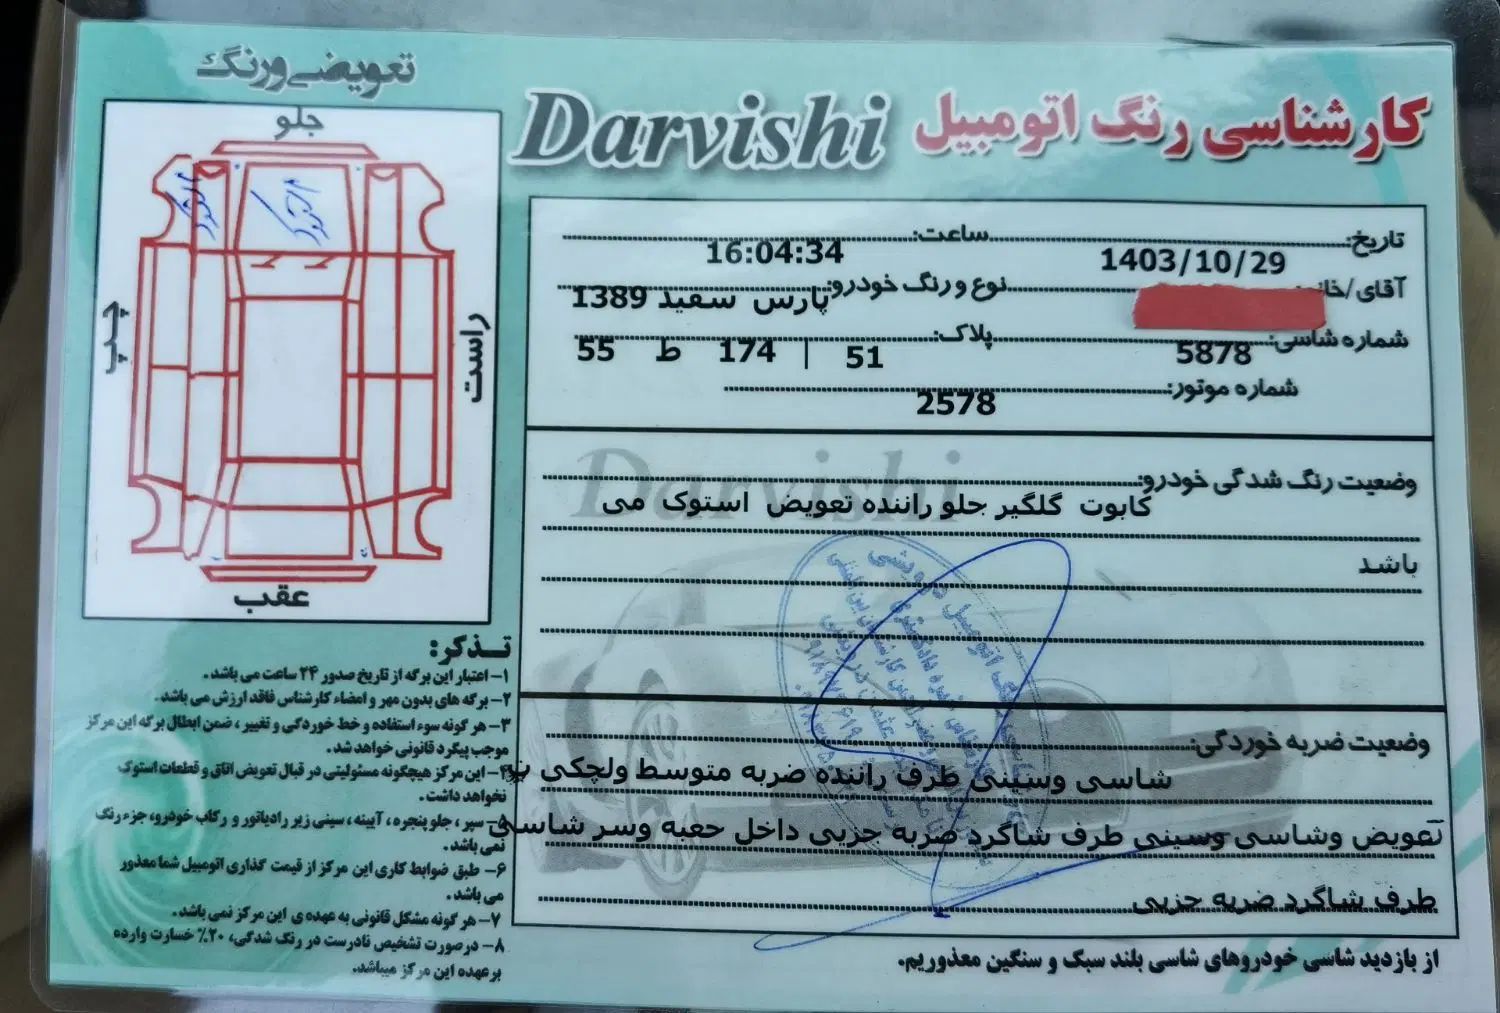 کارشناسی رنگ اتومبیل Darvishi
تاریخ: 1403/10/29 ساعت: 16:04:34
آقای/خانم: نوع و رنگ خودرو: پارس سفید 1389
شماره شاسی: 5878 پلاک: 51 | 174 ط 55
شماره موتور: 2578
وضعیت رنگ شدگی خودرو:
کاپوت گلگیر جلو راننده تعویض استوک می
باشد
وضعیت ضربه خوردگی:
شاسی وسینی طرف راننده ضربه متوسط ولچکی
تعویض وشاسی وسینی طرف شاگرد ضربه جزیی داخل جعبه وسر شاسی
طرف شاگرد ضربه جزیی
از بازدید شاسی خودروهای شاسی بلند سبک و سنگین معذوریم.
تعویضی و رنگ
جلو
استوک
استوک
چپ
راست
عقب
تـذکر:
۱- اعتبار این برگه از تاریخ صدور ۲۴ ساعت می باشد.
۲- برگه های بدون مهر و امضاء کارشناس فاقد ارزش می باشد.
۳- هر گونه سوء استفاده و خط خوردگی و تغییر، ضمن ابطال برگه این مرکز
موجب پیگرد قانونی خواهد شد.
۴- این مرکز هیچگونه مسئولیتی در قبال تعویض اتاق و قطعات استوک
نخواهد داشت.
۵- سپر، جلو پنجره، آیینه، سینی زیر رادیاتور و رکاب خودرو، جزء رنگ
نمی باشد.
۶- طبق ضوابط کاری این مرکز از قیمت گذاری اتومبیل شما معذور
می باشد.
۷- هر گونه مشکل قانونی به عهده ی این مرکز نمی باشد.
۸- درصورت تشخیص نادرست در رنگ شدگی، ۲۰٪ خسارت وارده
برعهده این مرکز میباشد.